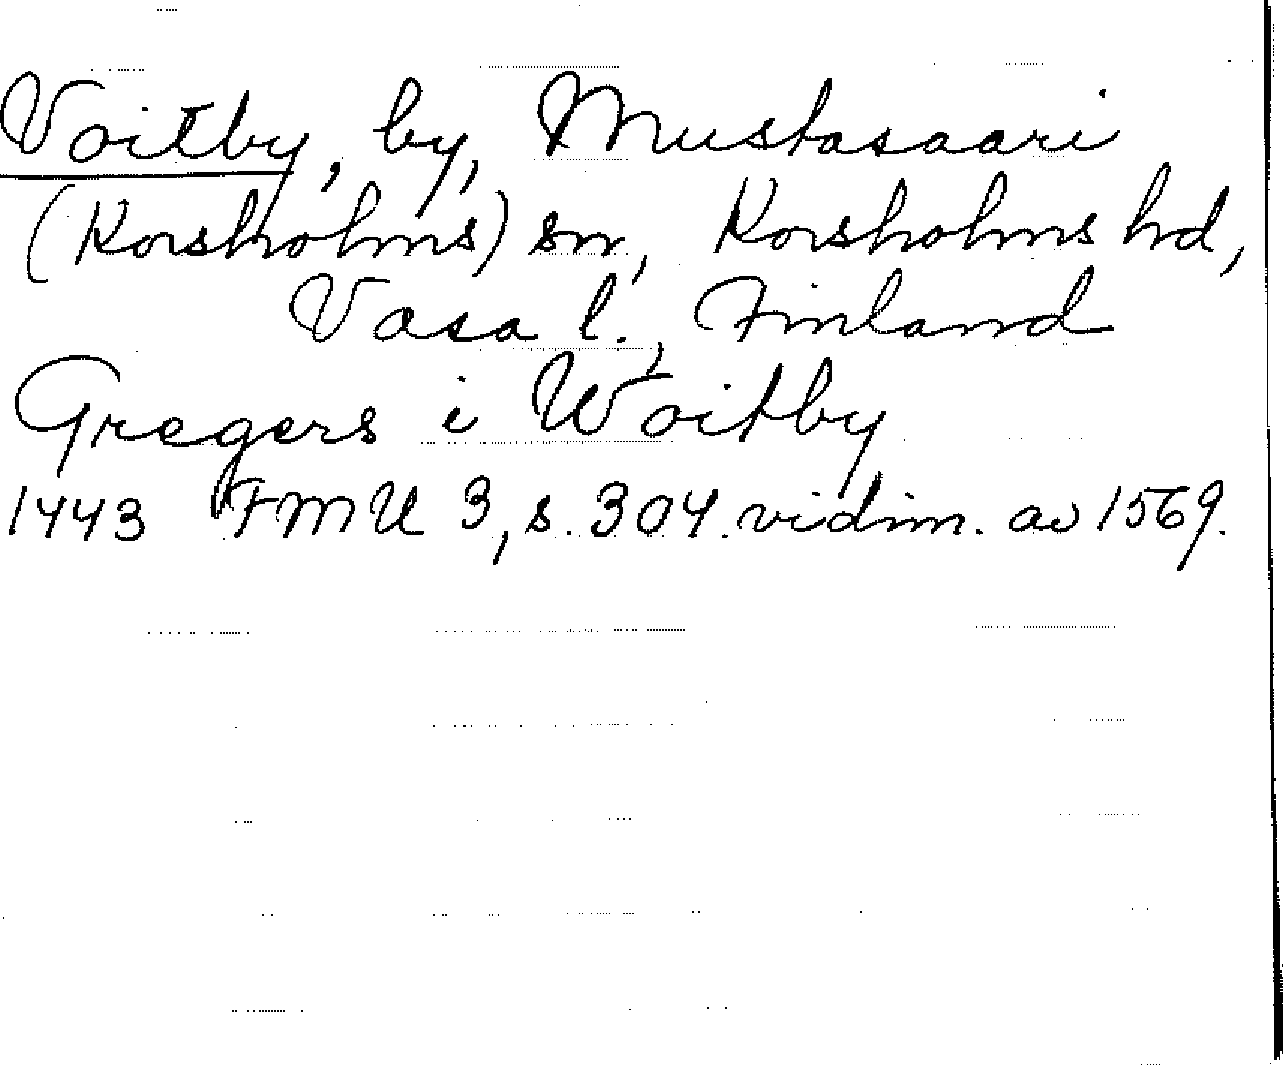 Voitby, by, Mustasaari
(Korsholms) sn, Korsholms hd,
Vasa l., Finland
Gregers i Woitby
1443 FMU 3, s. 304. vidim. av 1569.